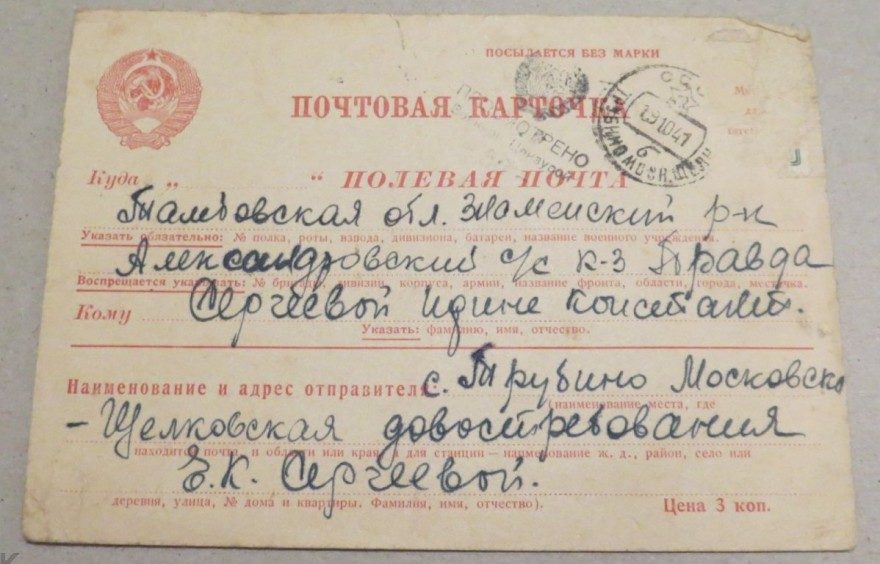 ПОСЫЛАЕТСЯ БЕЗ МАРКИ
ПОЧТОВАЯ КАРТОЧКА
СССР
19.10.41
б
Куда „ “ ПОЛЕВАЯ ПОЧТА
Тамбовская обл. Знаменский р-н
Указать обязательно: № полка, роты, взвода, дивизиона, батареи, название военного учреждения.
Александровский с/с к-з Правда
Воспрещается указывать: № бригады, дивизии, корпуса, армии, название фронта, области, города, местечка.
Кому Сергеевой Идине Констант.
Указать: фамилию, имя, отчество.
Наименование и адрес отправителя: с. Трубино Московско
(наименование места, где
- Щелковская довостребования
находится почта, и области или края а для станции — наименование ж. д., район, село или
Е.К. Сергеевой.
деревня, улица, № дома и квартиры. Фамилия, имя, отчество).
Цена 3 коп.